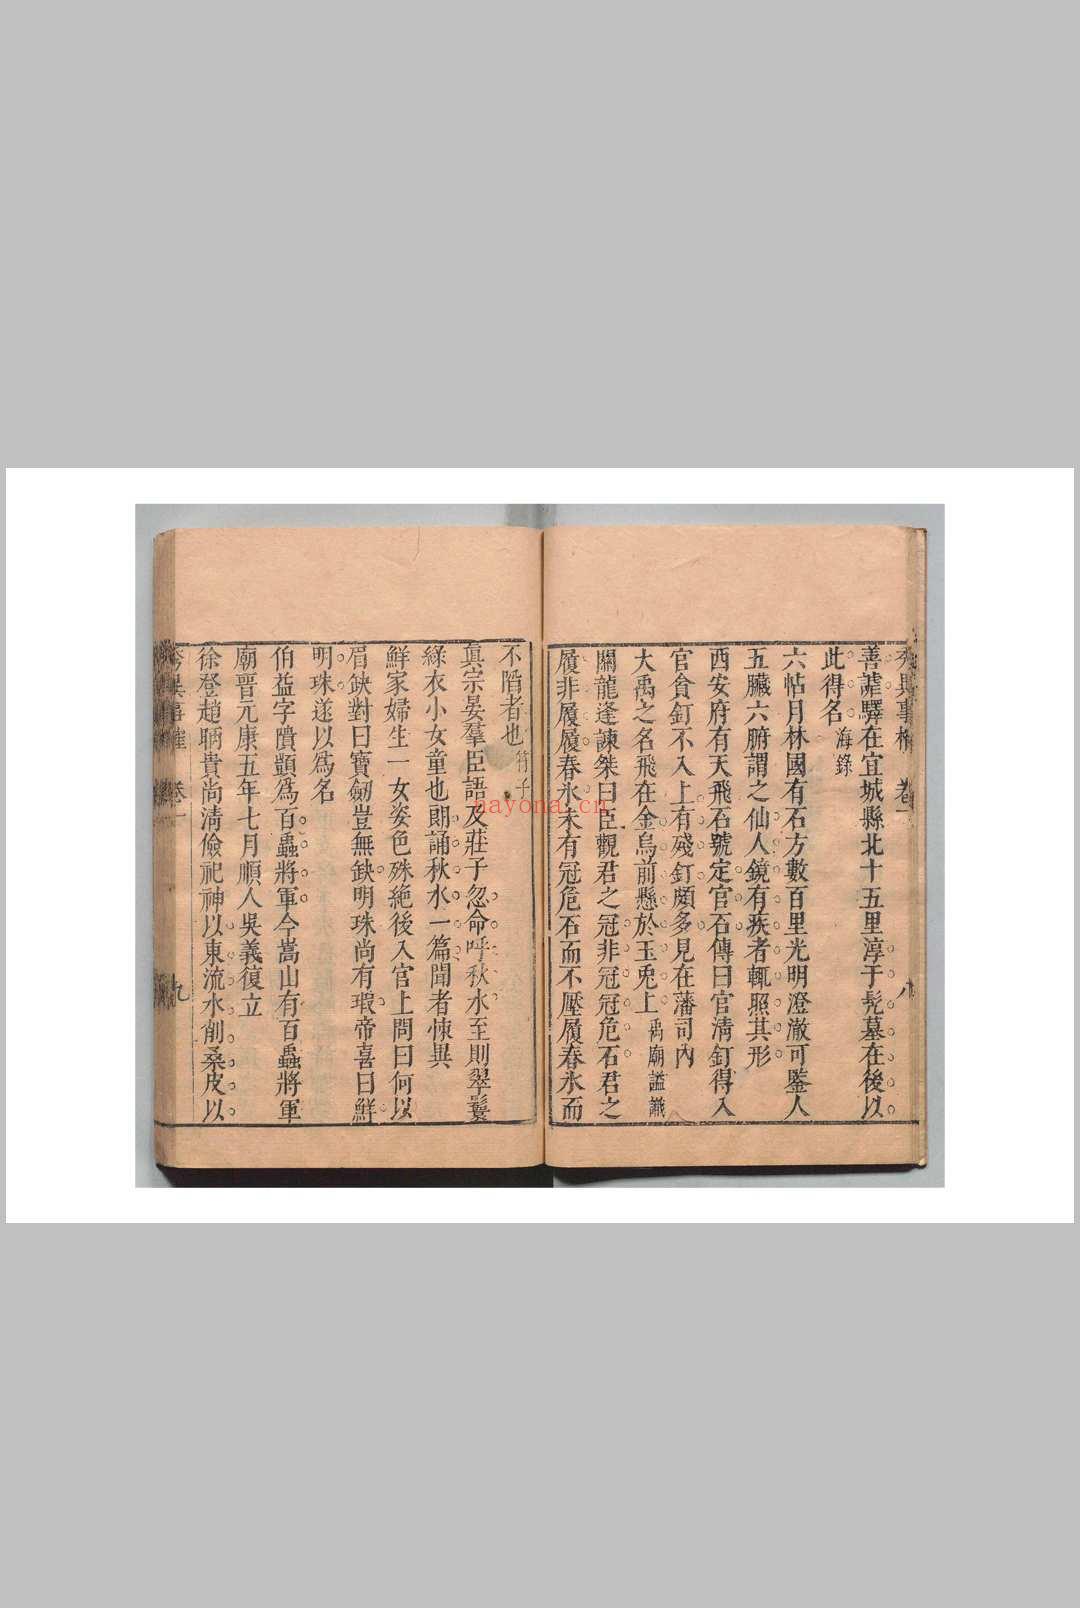 卷一
八
善謔驛在宜城縣北十五里淳于髡墓在後以
此得名海錄
六帖月林國有石方數百里光明澄澈可鑒人
五臟六腑謂之仙人鏡有疾者輒照其形
西安府有天飛石號定官石傳曰官清釘得入
官貪釘不入上有殘釘頗多見在藩司內
大禹之名飛在金烏前懸於玉兎上禹廟謚議
關龍逢諫桀曰臣觀君之冠非冠冠危石君之
履非履履春氷未有冠危石而不壓履春氷而
不陷者也符子
眞宗宴羣臣語及莊子忽命呼秋水至則翠鬟
綠衣小女童也朗誦秋水一篇聞者悚異
鮮家婦生一女姿色殊絕後入官上問曰何以
眉缺對曰寶劒豈無缺明珠尚有瑕帝喜曰鮮
明珠遂以爲名
伯益字隤顗爲百蟲將軍今嵩山有百蟲將軍
廟晋元康五年七月順人吳義復立
徐登趙昞貴尚清儉祀神以東流水削桑皮以
卷一
九
hayona.cn